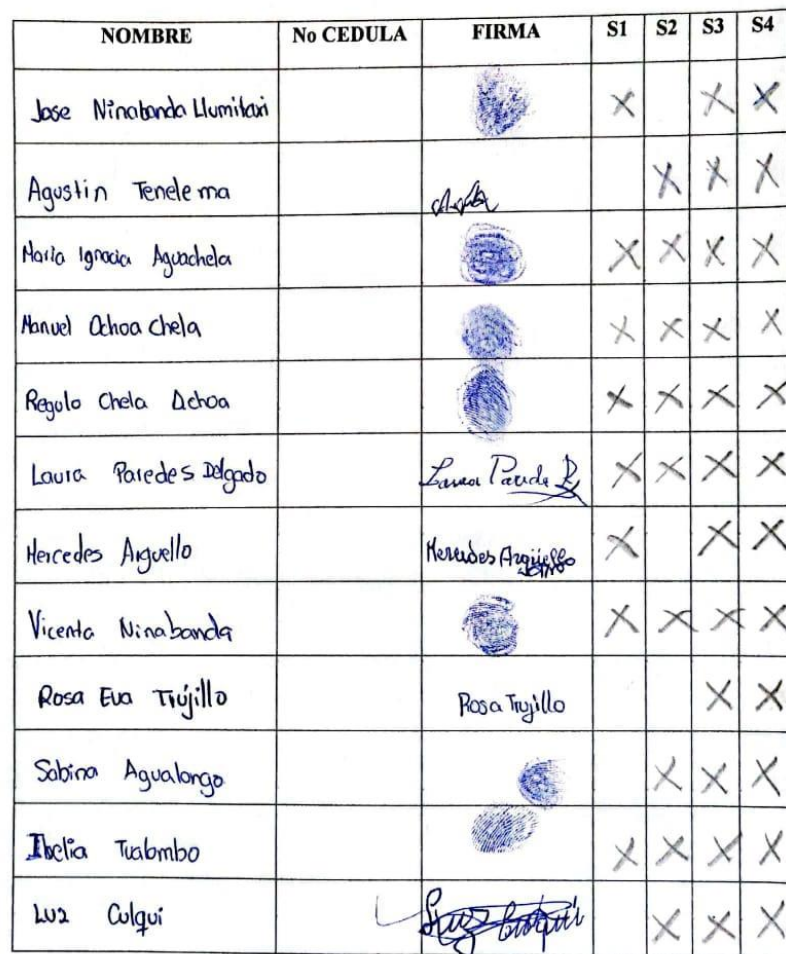 NOMBRE No CEDULA FIRMA S1 S2 S3 S4
Jose Ninabanda Llumitaxi X X X
Agustin Tenelema X X X
Maria Ignacia Aguachela X X X X
Manuel Ochoa Chela X X X X
Regulo Chela Ochoa X X X X
Laura Paredes Delgado Laura Parede X X X X
Mercedes Arguello Mercedes Argüello X X X
Vicenta Ninabanda X X X X
Rosa Eva Trujillo Rosa Trujillo X X
Sabina Agualongo X X X
Ibelia Tualombo X X X X
Luz Culqui Luz Culqui X X X